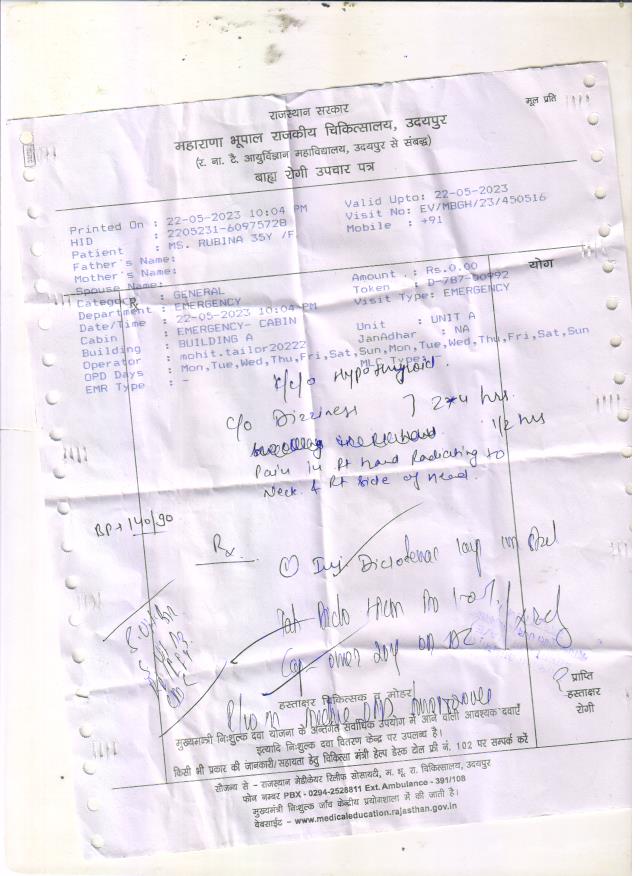 राजस्थान सरकार
मूल प्रति
महाराणा भूपाल राजकीय चिकित्सालय, उदयपुर
(र. ना. टै. आयुर्विज्ञान महाविद्यालय, उदयपुर से संबद्ध)
बाह्य रोगी उपचार पत्र
Printed On : 22-05-2023 10:04 PM Valid Upto: 22-05-2023
HID : 2205231-6097572B Visit No: EV/MBGH/23/450516
Patient : MS. RUBINA 35Y /F Mobile : +91
Father's Name:
Mother's Name:
Spouse Name:
Category : GENERAL Amount : Rs.0.00 योग
Department : EMERGENCY Token : D-787-00992
Date/Time : 22-05-2023 10:04 PM Visit Type: EMERGENCY
Cabin : EMERGENCY- CABIN
Building : BUILDING A Unit : UNIT A
Operator : mohit.tailor20222 JanAdhar : NA
OPD Days : Mon,Tue,Wed,Thu,Fri,Sat,Sun,Mon,Tue,Wed,Thu,Fri,Sat,Sun
EMR Type : - MLC Type:
K/c/o Hypothyroid.
c/o Dizziness
hrs.
1/2 hrs
Pain in Rt hand Radiating to
Neck & Rt side of head.
BP + 140/90
Rx
① Inj Diclofenac 1amp im
Tab
Cap
हस्ताक्षर चिकित्सक व मोहर
प्राप्ति
हस्ताक्षर
रोगी
मुख्यमन्त्री निःशुल्क दवा योजना के अन्तर्गत सर्वाधिक उपयोग में आने वाली आवश्यक दवाएँ
इत्यादि निःशुल्क दवा वितरण केन्द्र पर उपलब्ध है।
किसी भी प्रकार की जानकारी/सहायता हेतु चिकित्सा मंत्री हेल्प डेस्क टोल फ्री नं. 102 पर सम्पर्क करें
सौजन्य से - राजस्थान मेडीकेयर रिलीफ सोसायटी, म. भू. रा. चिकित्सालय, उदयपुर
फोन नम्बर PBX - 0294-2528811 Ext. Ambulance - 391/108
मुख्यमंत्री निःशुल्क जाँच केन्द्रीय प्रयोगशाला में की जाती है।
वेबसाईट - www.medicaleducation.rajasthan.gov.in